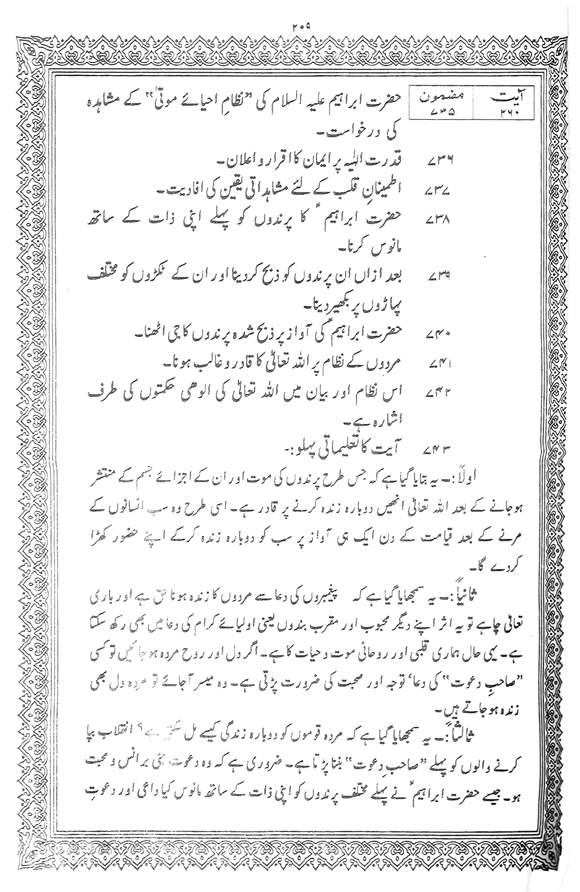 ۲۰۹
آیت مضمون
۲۶۰ ۷۳۵ حضرت ابراہیم علیہ السلام کی ”نظامِ احیائے موتیٰ“ کے مشاہدہ
کی درخواست۔
۷۳۶ قدرت الٰہیہ پر ایمان کا اقرار و اعلان۔
۷۳۷ اطمینانِ قلب کے لئے مشاہداتی یقین کی افادیت۔
۷۳۸ حضرت ابراہیمؑ کا پرندوں کو پہلے اپنی ذات کے ساتھ
مانوس کرنا۔
۷۳۹ بعد ازاں ان پرندوں کو ذبح کر دینا اور ان کے ٹکڑوں کو مختلف
پہاڑوں پر بکھیر دینا۔
۷۴۰ حضرت ابراہیمؑ کی آواز پر ذبح شدہ پرندوں کا جی اٹھنا۔
۷۴۱ مردوں کے نظام پر اللہ تعالیٰ کا قادر و غالب ہونا۔
۷۴۲ اس نظام اور بیان میں اللہ تعالیٰ کی الوھی حکمتوں کی طرف
اشارہ ہے۔
۷۴۳ آیت کا تعلیماتی پہلو:۔
اولاً:۔ یہ بتایا گیا ہے کہ جس طرح پرندوں کی موت اور ان کے اجزائے جسم کے منتشر
ہو جانے کے بعد اللہ تعالیٰ انھیں دوبارہ زندہ کرنے پر قادر ہے۔ اسی طرح وہ سب انسانوں کے
مرنے کے بعد قیامت کے دن ایک ہی آواز پر سب کو دوبارہ زندہ کرکے اپنے حضور کھڑا
کر دے گا۔
ثانیاً:۔ یہ سمجھایا گیا ہے کہ پیغمبروں کی دعا سے مردوں کا زندہ ہونا حق ہے اور باری
تعالیٰ چاہے تو یہ اثر اپنے دیگر محبوب اور مقرب بندوں یعنی اولیائے کرام کی دعا میں بھی رکھ سکتا
ہے۔ یہی حال ہماری قلبی اور روحانی موت و حیات کا ہے۔ اگر دل اور روح مردہ ہو جائیں تو کسی
”صاحبِ دعوت“ کی دعا، توجہ اور صحبت کی ضرورت پڑتی ہے۔ وہ میسر آ جائے تو مردہ دل بھی
زندہ ہو جاتے ہیں۔
ثالثاً:۔ یہ سمجھایا گیا ہے کہ مردہ قوموں کو دوبارہ زندگی کیسے مل سکتی ہے؟ انقلاب بپا
کرنے والوں کو پہلے ”صاحبِ دعوت“ بننا پڑتا ہے۔ ضروری ہے کہ وہ دعوت مبنی بر انس و محبت
ہو۔ جیسے حضرت ابراہیمؑ نے پہلے مختلف پرندوں کو اپنی ذات کے ساتھ مانوس کیا داعی اور دعوتِ